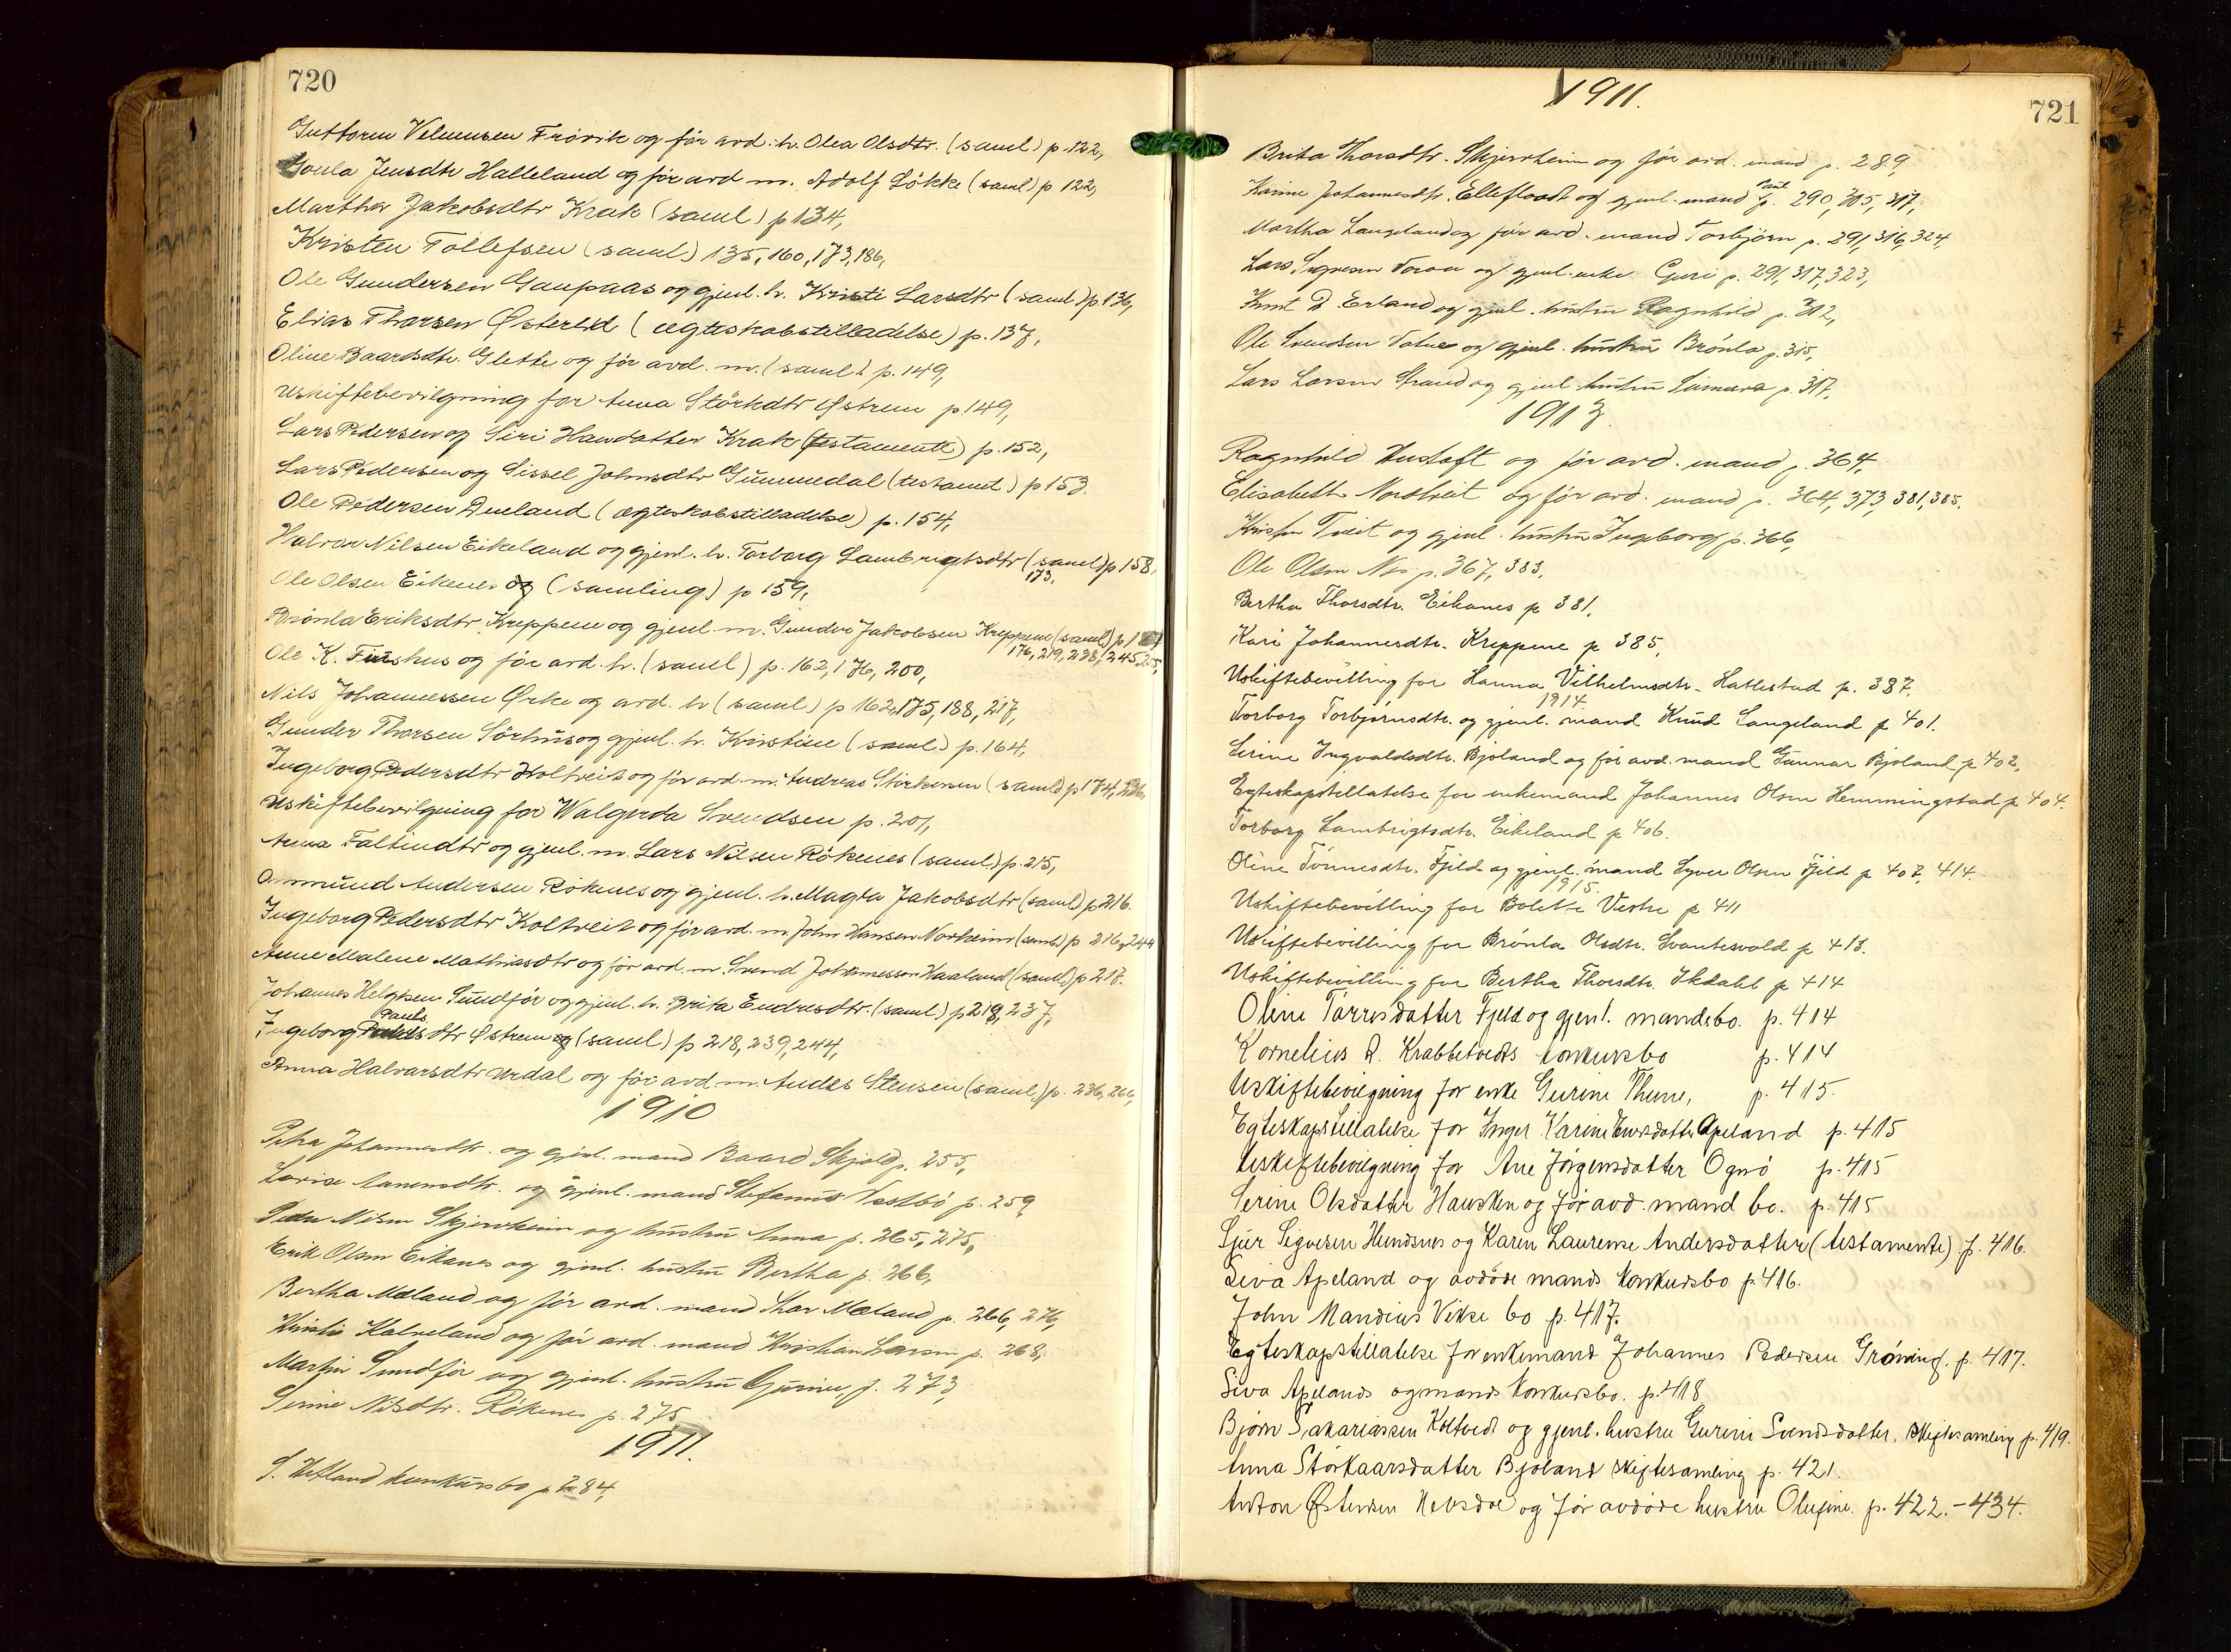 720
Guttorm Velumsen Frøvik og før avd. h. Olea Olsdtr. (saml) p. 122,
Goula Jensdtr Halleland og før avd m. Adolf Løkke (saml) p 122,
Martha Jakobsdtr Krak (saml) p 134,
Kristen Tollefsen (saml) 135, 160, 173, 186,
Ole Gundersen Gaupaas og gjenl. h. Kristi Larsdtr (saml) p 136,
Elias Thorsen Østerlid (ægteskabstilladelse) p. 137,
Oline Baardsdtr. Glette og før avd. m. (saml) p. 149,
Uskiftebevilgning for Anna Störkdtr Østrem p. 149,
Lars Pedersen og Siri Hansdatter Krak (testamente) p. 152,
Lars Pedersen og Sissel Johnsdtr Gummedal (testamt.) p 153.
Ole Pedersen Dueland (ægteskabstilladelse) p. 154,
Halvor Nilsen Eikeland og gjenl. h. Torborg Lambrigtsdtr (saml) p 158,
173,
Ole Olsen Eikenes og (samling) p 159,
Brönla Eriksdtr Kreppene og gjenl. m. Gunder Jakobsen Kreppene (saml) p 1
176, 219, 238, 245, 255,
Ole K. Fuishus og før avd. h. (saml) p. 162, 176, 200,
Nils Johannessen Ørke og avd. h (saml) p 162, 175, 188, 217,
Gunder Thorsen Sörhus og gjenl. h. Kristine (saml) p. 164,
Ingeborg Pedersdtr Holtveit og før avd. m. Andreas Störkersen (saml) p 174, 236,
Uskiftebevilgning for Walgerda Svendsen p. 201,
Anna Faltindtr og gjenl. m. Lars Nilsen Rökenes (saml) p. 215,
Ommund Andersen Rökenes og gjenl. h. Magla Jakobsdtr (saml) p 216.
Ingeborg Pedersdtr Koltveit og før avd. m. John Hansen Norheim (saml) p 216, 244
Anne Malene Mathiasdtr og før avd. m. Svend Johannessen Haaland (saml) p 217.
Johannes Helgesen Sundfør og gjenl. h. Brita Endresdtr. (saml) p 219, 237,
Pauls
Ingeborg dtr Østrem og (saml) p 218, 239, 244,
Anna Halvarsdtr Urdal og før avd. m. Anders Stensen (saml.) p. 236, 266,
1910
Petra Johannesdtr. og gjenl. mand Baard Skjold p. 255,
Lovise dtr. og gjenl. mand Stefanus Vestbö p. 259,
Peder Nilsen Skjerrheim og hustru Anna p. 265, 275,
Erik Olsen Eikanes og gjenl. hustru Bertha p. 266,
Bertha Mæland og før avd. mand Thor Mæland p. 266, 276,
Kristi Kalveland og før avd. mand Kristian Larsen p. 268,
Martin Sundfør og gjenl. hustru Gurine, p. 273,
Serine Nilsdtr. Rökenes p. 275,
1911.
S. Hetland konkursbo p 284,
1911.
721
Brita Thorsdtr. Skjerrheim og før avd. mand p. 289,
Karine Johannesdtr. Ellefloodt og gjenl. mand p. 290, 305, 317,
Martha Langeland og før avd. mand Torbjørn p. 291, 316, 324,
Lars Sigvesen og gjenl. enke Guri p. 291, 317, 323,
Knut D. Erland og gjenl. hustru Ragnhild p. 312,
Ole Svendsen Vatne og gjenl. hustru Brönla p. 315,
Lars Larsen Strand og gjenl. hustru p. 317,
1913
Ragnhild Hustoft og før avd. mand p. 364,
Elisabeth Nordtveit og før avd. mand p. 364, 373, 381, 385.
Kristen Tveit og gjenl. hustru Ingeborg p. 366,
Ole Olsen Nes p. 367, 383,
Bertha Thorsdtr. Eikanes p 381,
Kari Johannesdtr. Kreppene p 385,
Uskiftebevilling for Hanna Vilhelmsdtr. Hatlestad p. 387,
1914
Torborg Torbjørnsdtr. og gjenl. mand Knud Langeland p 401.
Serine Ingvaldsdtr. Bjoland og før avd. mand Gunnar Bjoland p 402,
Egteskapstillatelse for enkemand Johannes Olsen Hemmingstad p 404.
Torborg Lambrigtsdtr. Eikeland p 406.
Oline Tönnesdtr. Fjeld og gjenl. mand Syver Olsen Fjeld p 407, 414.
1915.
Uskiftebevilling for Bolette Vestre p 411
Uskiftebevilling for Brönla Olsdtr. Svantesvold p 413.
Uskiftebevilling for Bertha Thorsdtr. Ikdahl p 414
Oline Tørresdatter Fjeld og gjenl. mandsbo. p. 414
Kornelius D. Krabbetveds konkursbo p. 414
Uskiftebevilgning for enke Gurine Thune, p. 415.
Egteskapstillatelse for Inger Karine Eversdatter Apeland p. 415
Uskiftebevilgning for Ane Jörgensdatter Ognö p. 415
Serine Olsdatter Hausken og før avd. mand bo. p. 415
Sjur Sigvesen Hundsnes og Karen Laurense Andersdatter (testamente) p. 416.
Siva Apeland og avdøde mands konkursbo p. 416.
John Mandius Vikse bo p. 417.
Egteskapstillatelse for enkemand Johannes Pedersen Grønning. p. 417.
Siva Apelands og mands konkursbo. p. 418
Bjørn Sakariassen Koltvedt og gjenl. hustru Gurine Svendsdatter, skiftesamling p. 419.
Anna Störkaarsdatter Bjoland skiftesamling p. 421.
Anton Østensen Nevsdal og før avdøde hustru Olufine. p. 422. - 434.